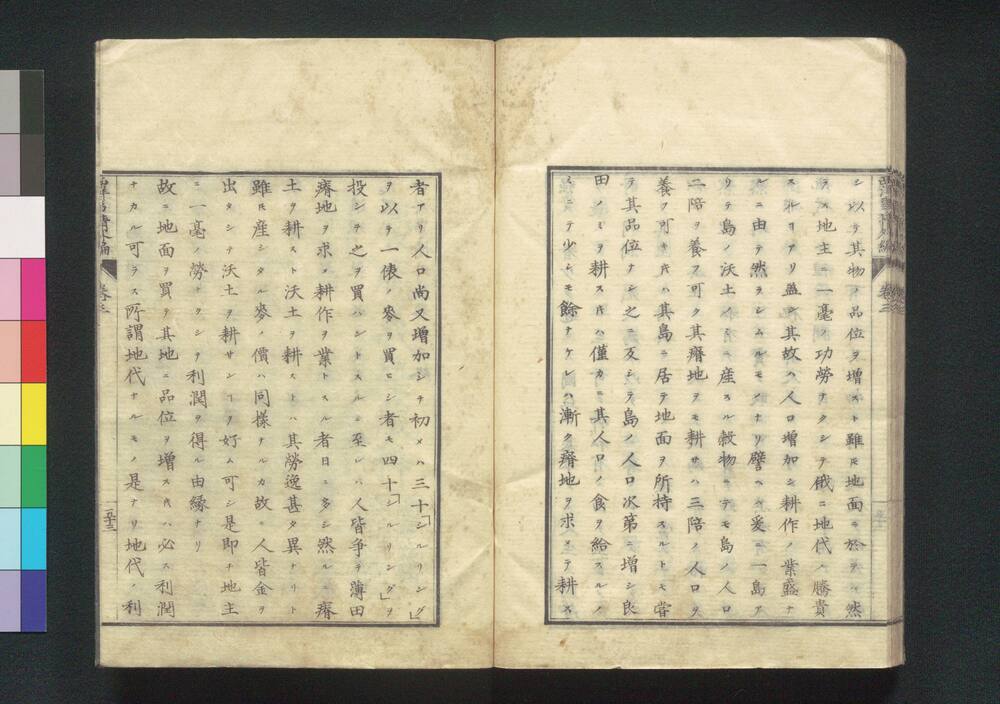 シ以テ其物ノ品位ヲ増スト雖𪜈地面ニ於テハ然
ラス地主ニ一毫ノ功勞ナクシテ俄ニ地代ノ騰貴
スルヿアリ蓋シ其故ハ人口増加シ耕作ノ業盛ナ
ルニ由テ然ヲシムルモノナリ譬ヘハ爰ニ一島ア
リテ島ノ沃土ノミニ産スル穀物ニテモ島ノ人口
二陪ヲ養フ可ク其瘠地ヲモ耕サハ三陪ノ人口ヲ
養フ可キ𪜈ハ其島ニ居テ地面ヲ所持スルトモ甞
テ其品位ナシ之ニ反シテ島ノ人口次第ニ増シ良
田ノミヲ耕ス𪜈ハ僅カニ其人口ノ食ヲ給スルノ
ミニテ少シモ餘ナケレハ漸ク瘠地ヲ求メテ耕ス
者アリ人口尚又増加シテ初メハ三十「シルリング」
ヲ以テ一俵ノ麥ヲ買ヒシ者モ四十「シルリング」ヲ
投シテ之ヲ買ハントスルニ至レハ人皆争テ薄田
瘠地ヲ求メ耕作ヲ業トスル者日ニ多シ然ルニ瘠
土ヲ耕スト沃土ヲ耕ストハ其勞逸甚タ異ナリト
雖𪜈産シタル麥ノ價ハ同様ナルカ故ニ人皆金ヲ
出タシテ沃土ヲ耕サンヿヲ好ム可シ是即チ地主
ニ一毫ノ勞ナクシテ利潤ヲ得ル由縁ナリ
故ニ地面ヲ買テ其地ニ品位ヲ増ス𪜈ハ必ス利潤
ナカル可ラス所謂地代ナルモノ是ナリ地代ノ利
卷之三
五十三